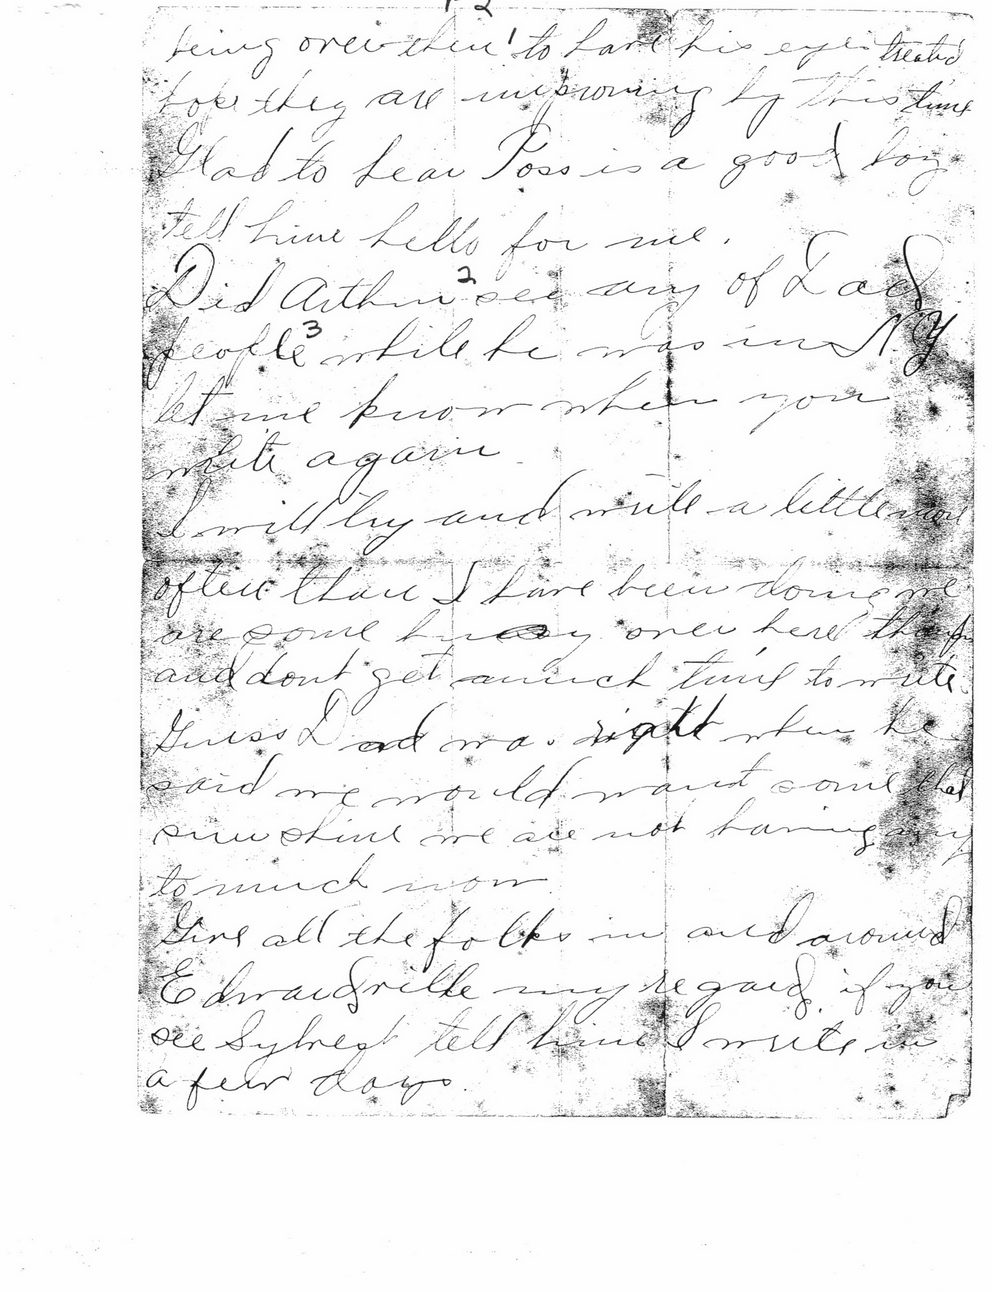 P2
being over there 1 to have his eyes treated
hope they are improving by this time
Glad to hear Toss is a good boy
tell him hello for me.
Did Arthur 2 see any of Dad
people 3 while he was in N.Y
let me know when you
write again
I will try and write a little more
often than I have been doing we
are some busy over here
and dont get much time to write
Guess Dad was right when he
said we would want some that
sun shine we are not having any
to much now
Give all the folks in and around
Edwardsville my regards, if you
see Sylvest tell him I write in
a few days.